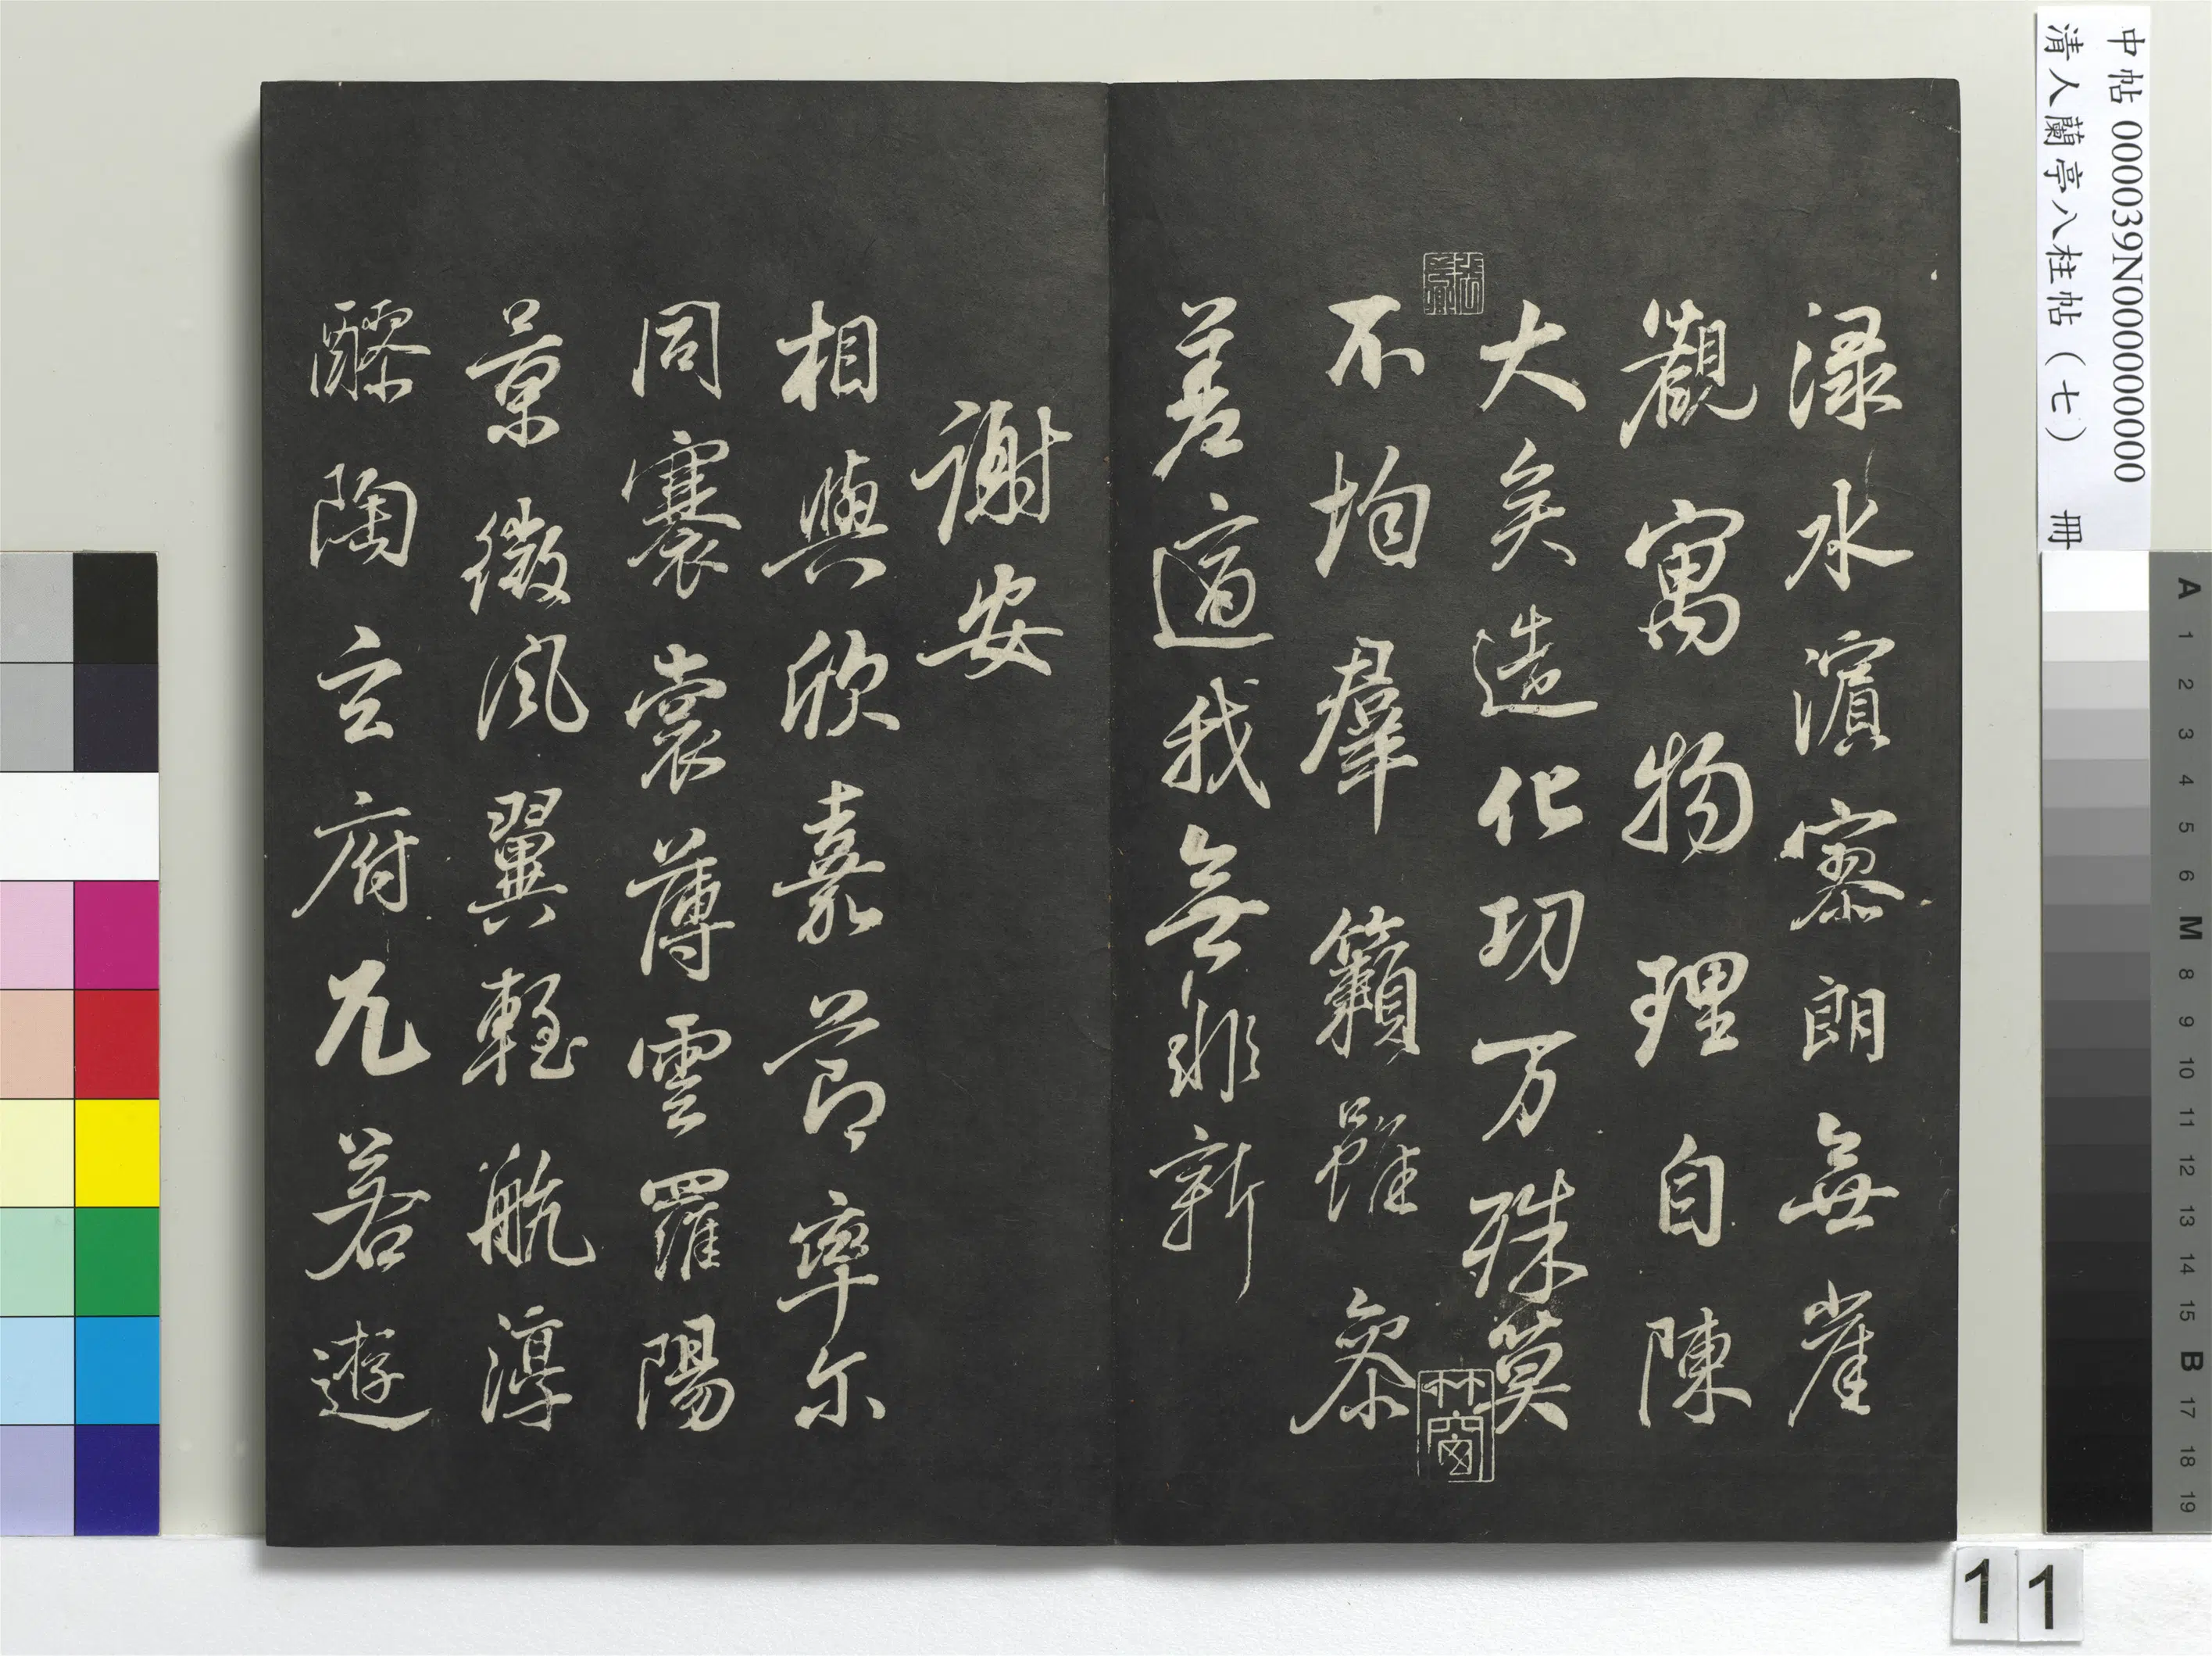 渌水濵寥朗無崖
觀寓物理自陳
大矣造化功万殊莫
不均羣籟雖叅
差適我無非新
謝安
相與欣嘉節率尓
同褰裳薄雲羅陽
景微風翼輕航淳
醪陶玄府兀若遊
竹窗
中帖 000039N000000000
清人蘭亭八柱帖（七） 冊
A 1 2 3 4 5 6 M 8 9 10 11 12 13 14 15 B 17 18 19
11